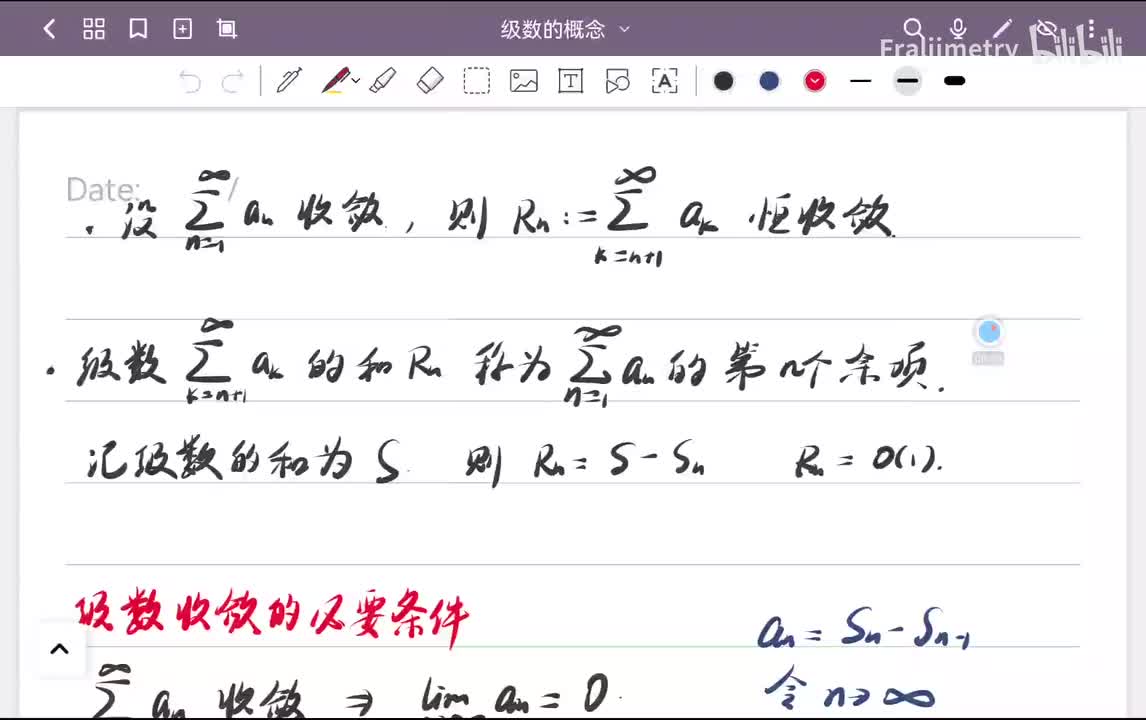 级数的概念
Fraljimetry bilibili
Date: /
· 设 ∑_{n=1}^{∞} aₙ 收敛, 则 Rₙ := ∑_{k=n+1}^{∞} aₖ 恒收敛.
· 级数 ∑_{k=n+1}^{∞} aₖ 的和 Rₙ 称为 ∑_{n=1}^{∞} aₙ 的第n个余项.
记级数的和为 S. 则 Rₙ = S - Sₙ Rₙ = o(1).
级数收敛的必要条件
aₙ = Sₙ - Sₙ₋₁
∑^{∞} aₙ 收敛 ⇒ lim aₙ = 0.
令 n→∞